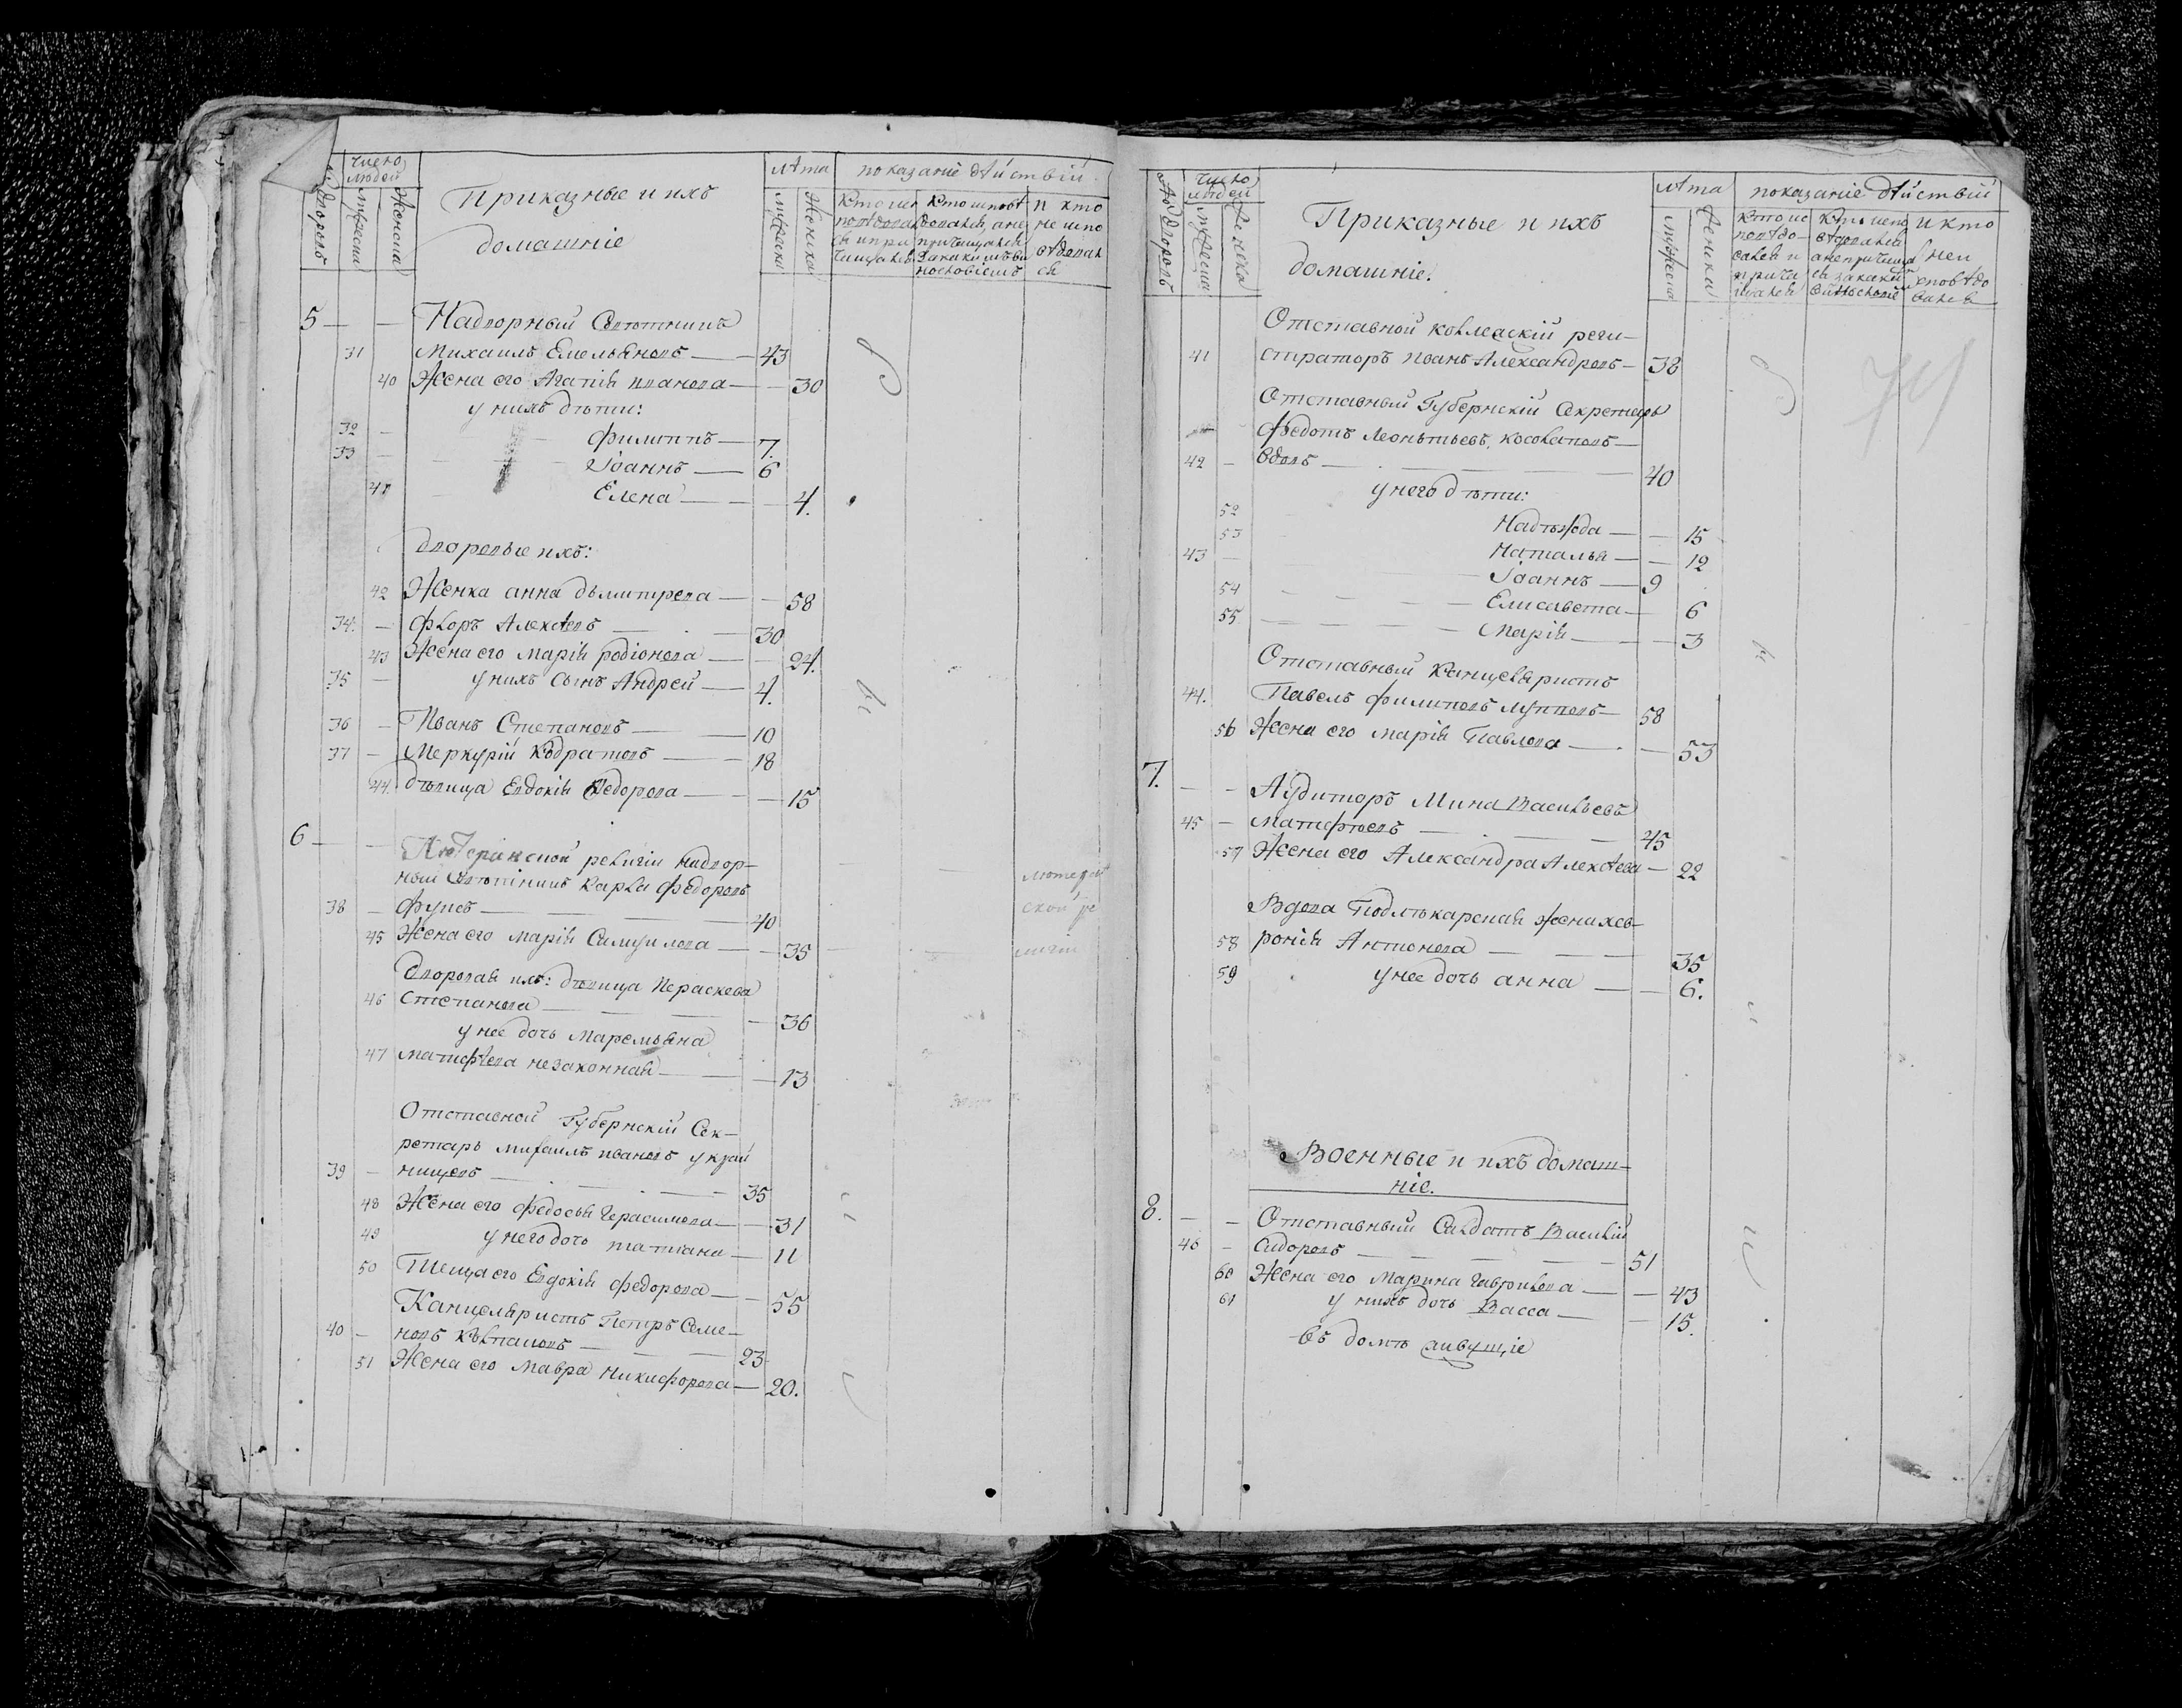 число
людей
№ дворовъ
мужеска
женска
Приказные и ихъ
домашніе
лѣта
мужеска
женска
показаніе дѣйствій
кто ис
повѣдовал
ся и при
чащался
кто исповѣ
довался, а не
причащался
и за какимъ ви
нословіемъ
и кто
не испо
вѣдовал
ся
5 — — Надворный Совѣтникъ
31 Михаилъ Емельяновъ — 43
40 Жена его Агапія Иванова — 30
у нихъ дѣти:
32 — Филиппъ — 7.
33 — Іоаннъ — 6
41 Елена — 4.
дворовые ихъ:
42 Женка анна дьмитрева — 58
34. — Флоръ Алексѣевъ — 30
43 Жена его Марія родіонова — 24.
35 — у нихъ сынъ Андрей — 4.
36 — Иванъ Степановъ — 10
37 — Меркурій Кодратовъ — 18
44. дѣвица Евдокія Федорова — 15
6 — — Лютеранской религіи надвор-
ный Совѣтникъ Карла Федоровъ
38 — Фуксъ — 40
45 Жена его Марія — 35
лютеран
ской ре
лигіи
Дворовая ихъ: дѣвица Параскева
46 Степанова — 36
у нее дочь Маремьяна
47 Матфѣева незаконная — 13
Отставной Губернскій Сек-
ретарь Михаилъ Ивановъ Украй
39 — нцовъ — 35
48 Жена его Федосья Герасимова — 31
49 у него дочь татіана — 11
50 Теща его Евдокія Федорова — 55
Канцеляристъ Петръ Семе-
40 — новъ — 23
51 Жена его Мавра Никифорова — 20.
№ дворовъ
число
людей
мужеска
женска
Приказные и ихъ
домашніе.
лѣта
мужеска
женска
показаніе дѣйствій
кто ис
повѣдо-
вался и
прича
щался
кто испо
вѣдовался
а не причаща
ся и за какимъ
винословіе
и кто
не и
сповѣдо
вался
74
Отставной коллежскій реги-
41 страторъ Иванъ Александровъ — 38
Отставный Губернскій Секретарь
Федотъ Леонтьевъ, Косолаповъ —
42 — вдовъ — 40
у него дѣти:
52 Надѣжда — 15
53 Наталья — 12
43 — Іоаннъ — 9
54 Елисавета — 6
55 Марія — 3
Отставный Канцеляристъ
44. Павелъ Филиповъ Луповъ — 58
56 Жена его Марія Павлова — 53
7. — — Аудиторъ Мина Васильевъ
45 — Матфѣевъ — 45
57 Жена его Александра Алексѣева — 22
Вдова Подлѣкарская жена хев-
58 ронія Антонова — 35
59 у нее дочь анна — 6.
Военные и ихъ домаш-
ніе.
8. — — Отставный Салдатъ Василій
46 — Сидоровъ — 51
60 Жена его Марина Гаврилова — 43
61 у нихъ дочь Васса — 15.
въ домѣ живущіе